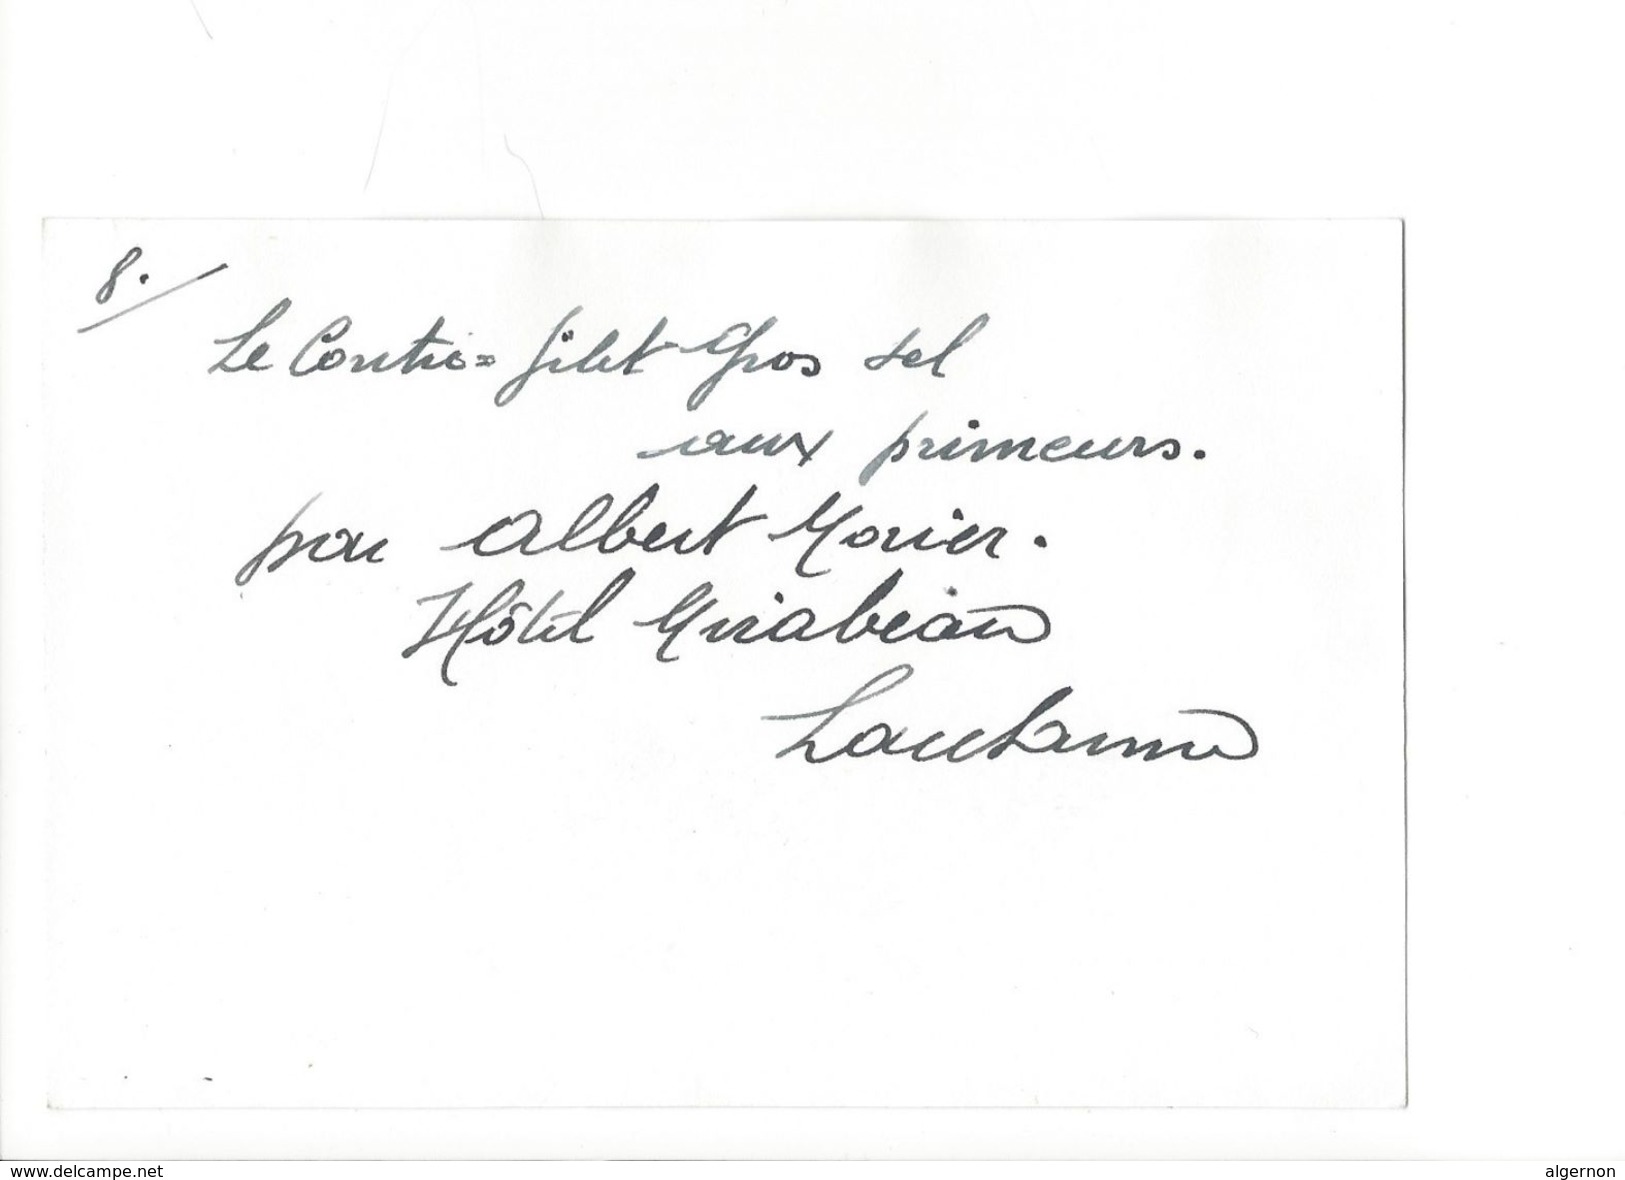 8.
Le Contre=filet Gros sel
aux primeurs.
par Albert Morier.
Hôtel Mirabeau
Lausanne
www.delcampe.net
algernon